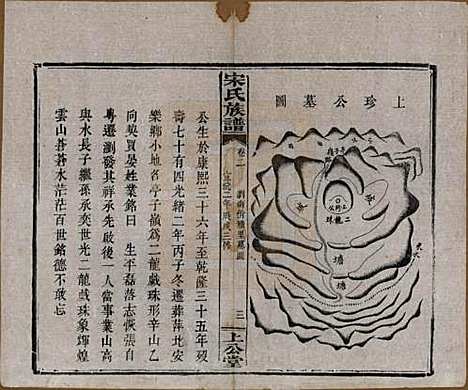 上珍公墓圖
二龍
珠
塘
塘
宋氏族譜
卷二
三
上公堂
公生於康熙三十六年至乾隆三十五年歿
壽七十有四光緒二年丙子冬遷葬萍北安
樂鄉小地名亭子嶺為二龍戲珠形辛山乙
向契買晏姓業銘曰 生平磊落志恢張自
粵遷瀏發其祥承先啟後一人當事業山高
與水長子繼孫承奕世光二龍戲珠象輝煌
雲山蒼蒼水茫茫百世銘德不敢忘